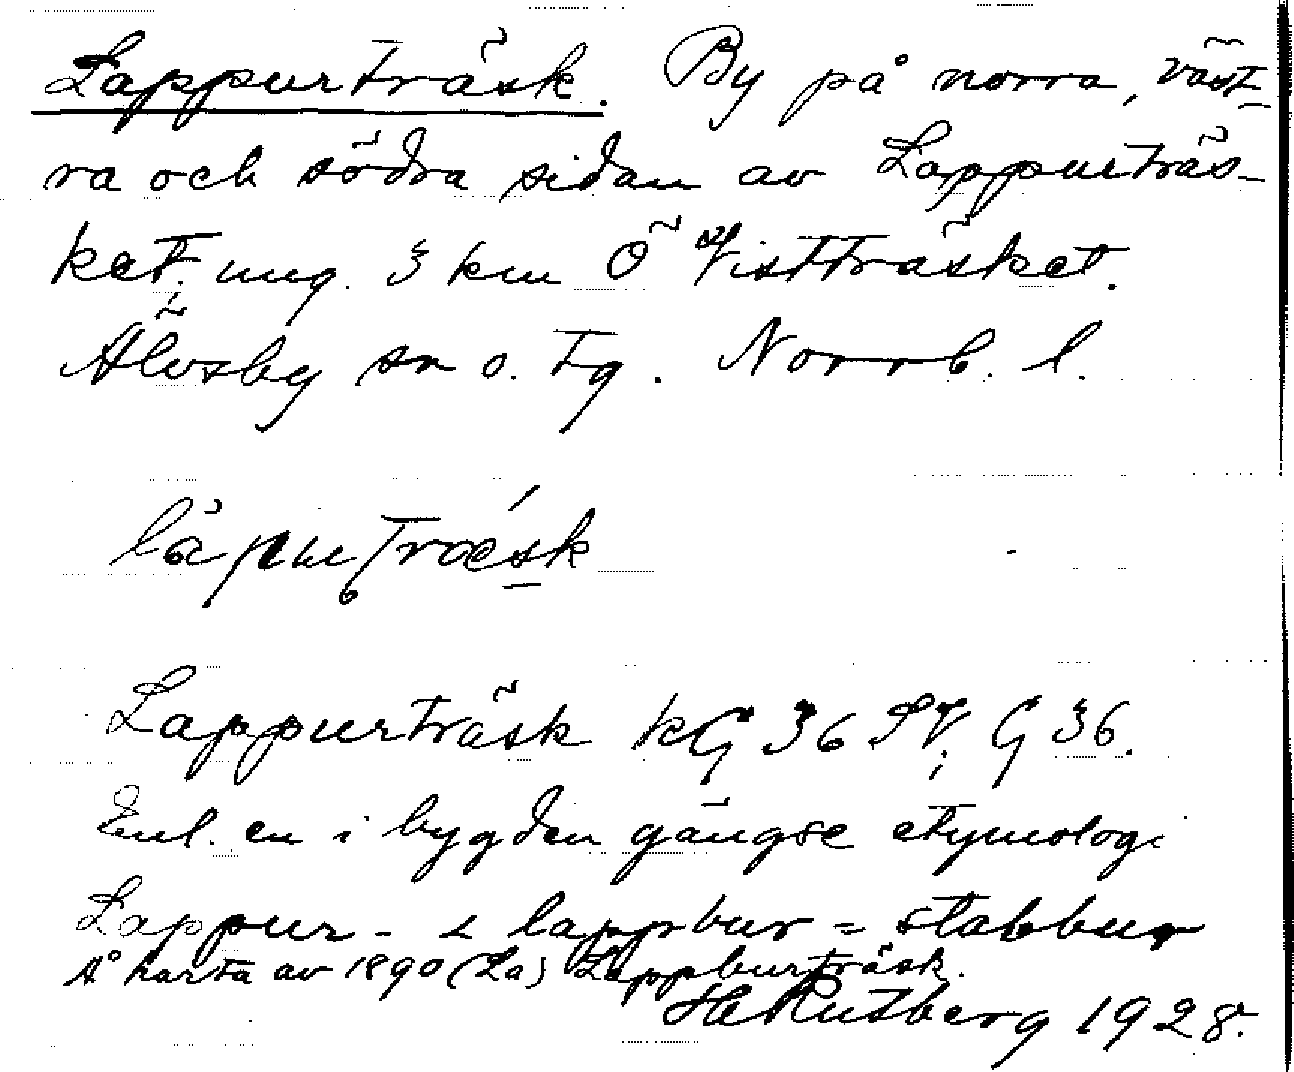 Lappurträsk. By på norra, väst-
ra och södra sidan av Lappurträs-
ket, ung. 3 km Ö Vistträsket.
Älvsby sn o. tg. Norrb. l.
Lappurträsk kG 36 SV; G 36.
Enl. en i bygden gängse etymologi
Lappur- < lappbur = stabbur
Å karta av 1890 (La) Lappburträsk.
Rutberg 1928.